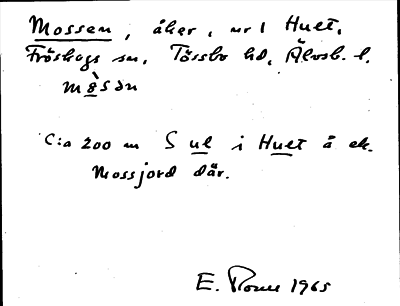 Mossen, åker, nr 1 Huet,
Fröskogs sn. Tössbo hd, Älvsb. l.
mo̱̊̀sən
C:a 200 m S ul i Huet å ek.
Mossjord där.
E. 1965